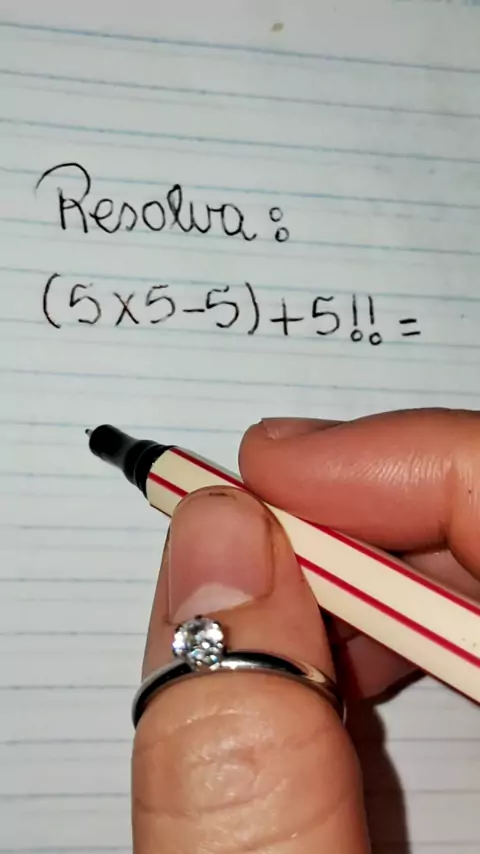 Resolva:
(5x5-5)+5!!=